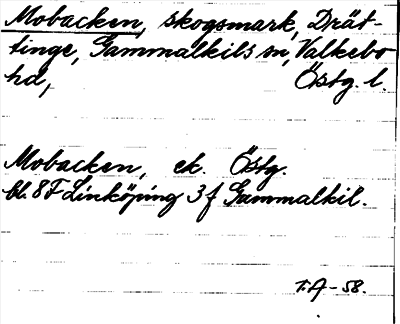 Mobacken, skogsmark, Drät-
tinge, Gammalkils sn, Valkebo
hd, Östg. l.
Mobacken, ek. Östg.
bl. 8 F Linköping 3 f Gammalkil.
T.A-58.